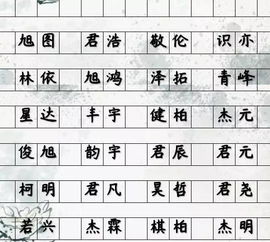 旭图 君浩 敬伦 识亦
林依 旭鸿 泽拓 青峰
星达 丰宇 健柏 杰元
俊旭 韵宇 君辰 君元
柯明 君凡 昊哲 君尧
若兴 杰霖 棋柏 杰明